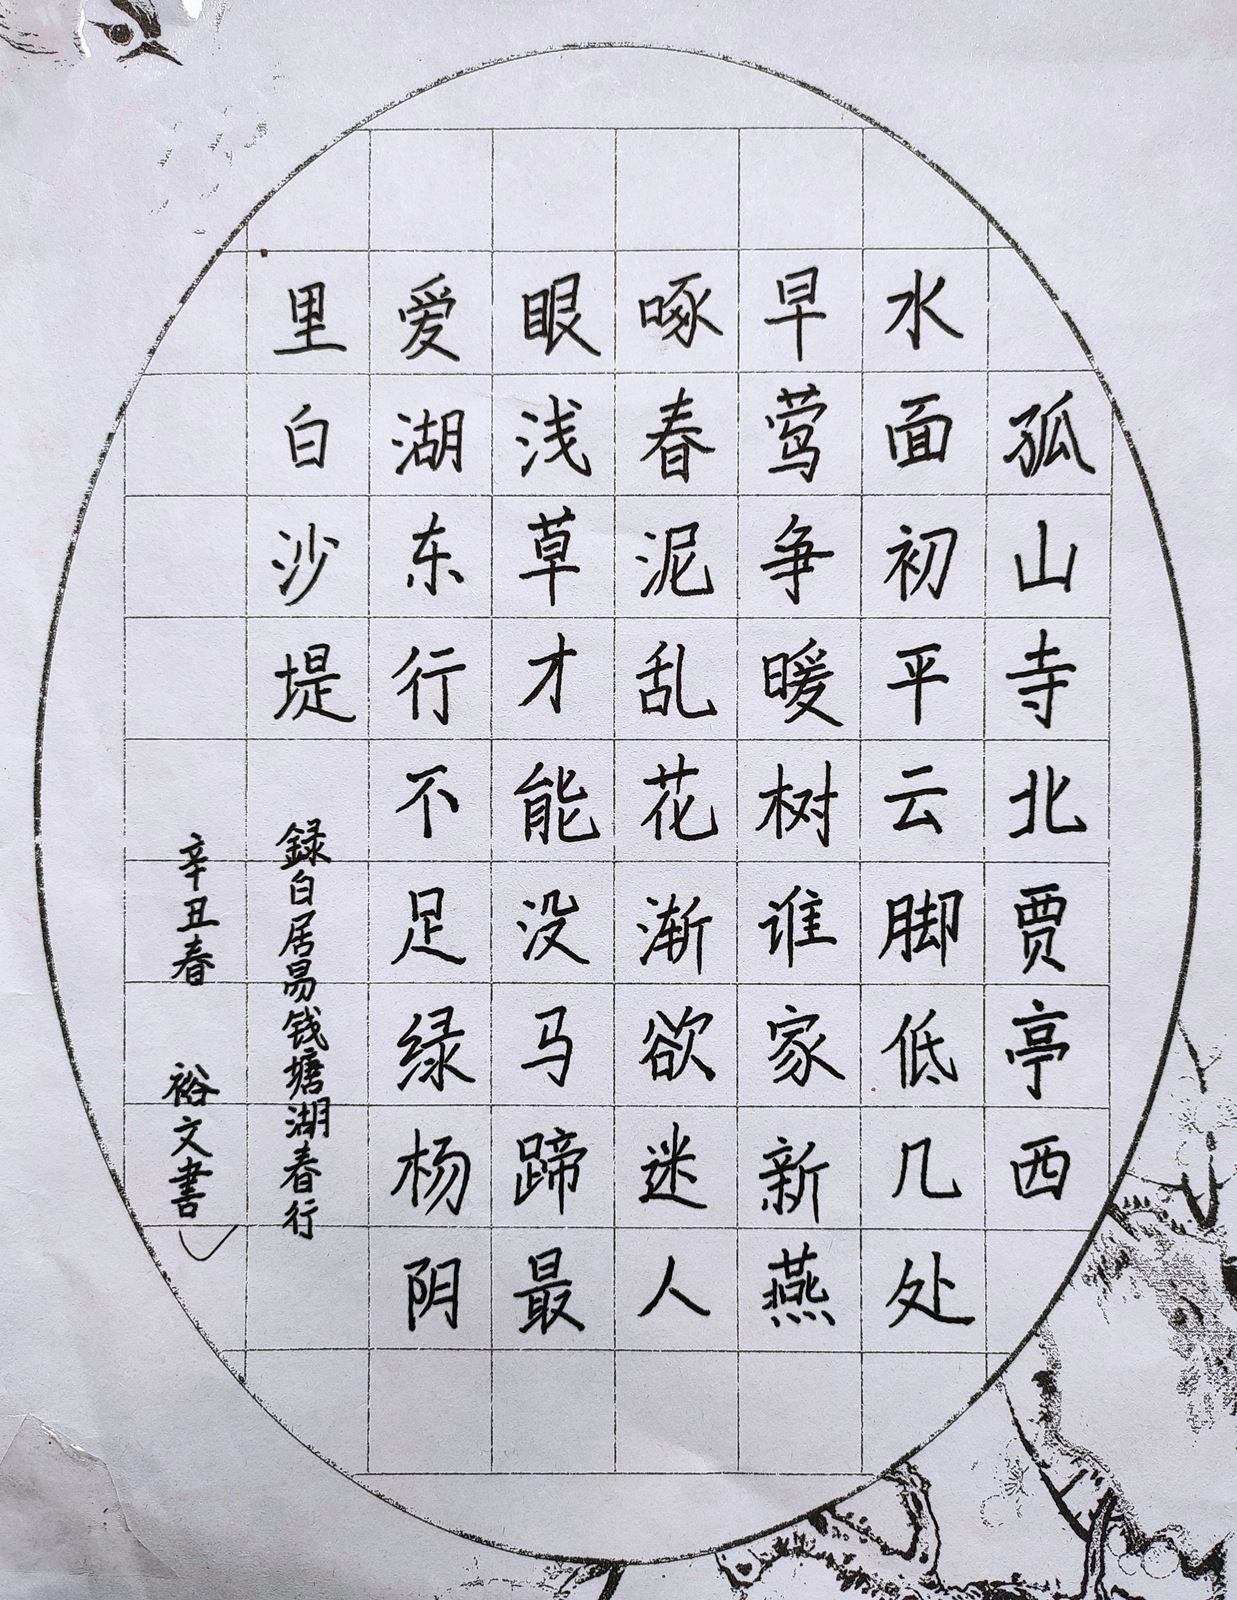 孤山寺北贾亭西
水面初平云脚低几处
早莺争暖树谁家新燕
啄春泥乱花渐欲迷人
眼浅草才能没马蹄最
爱湖东行不足绿杨阴
里白沙堤
録白居易钱塘湖春行
辛丑春 裕文書